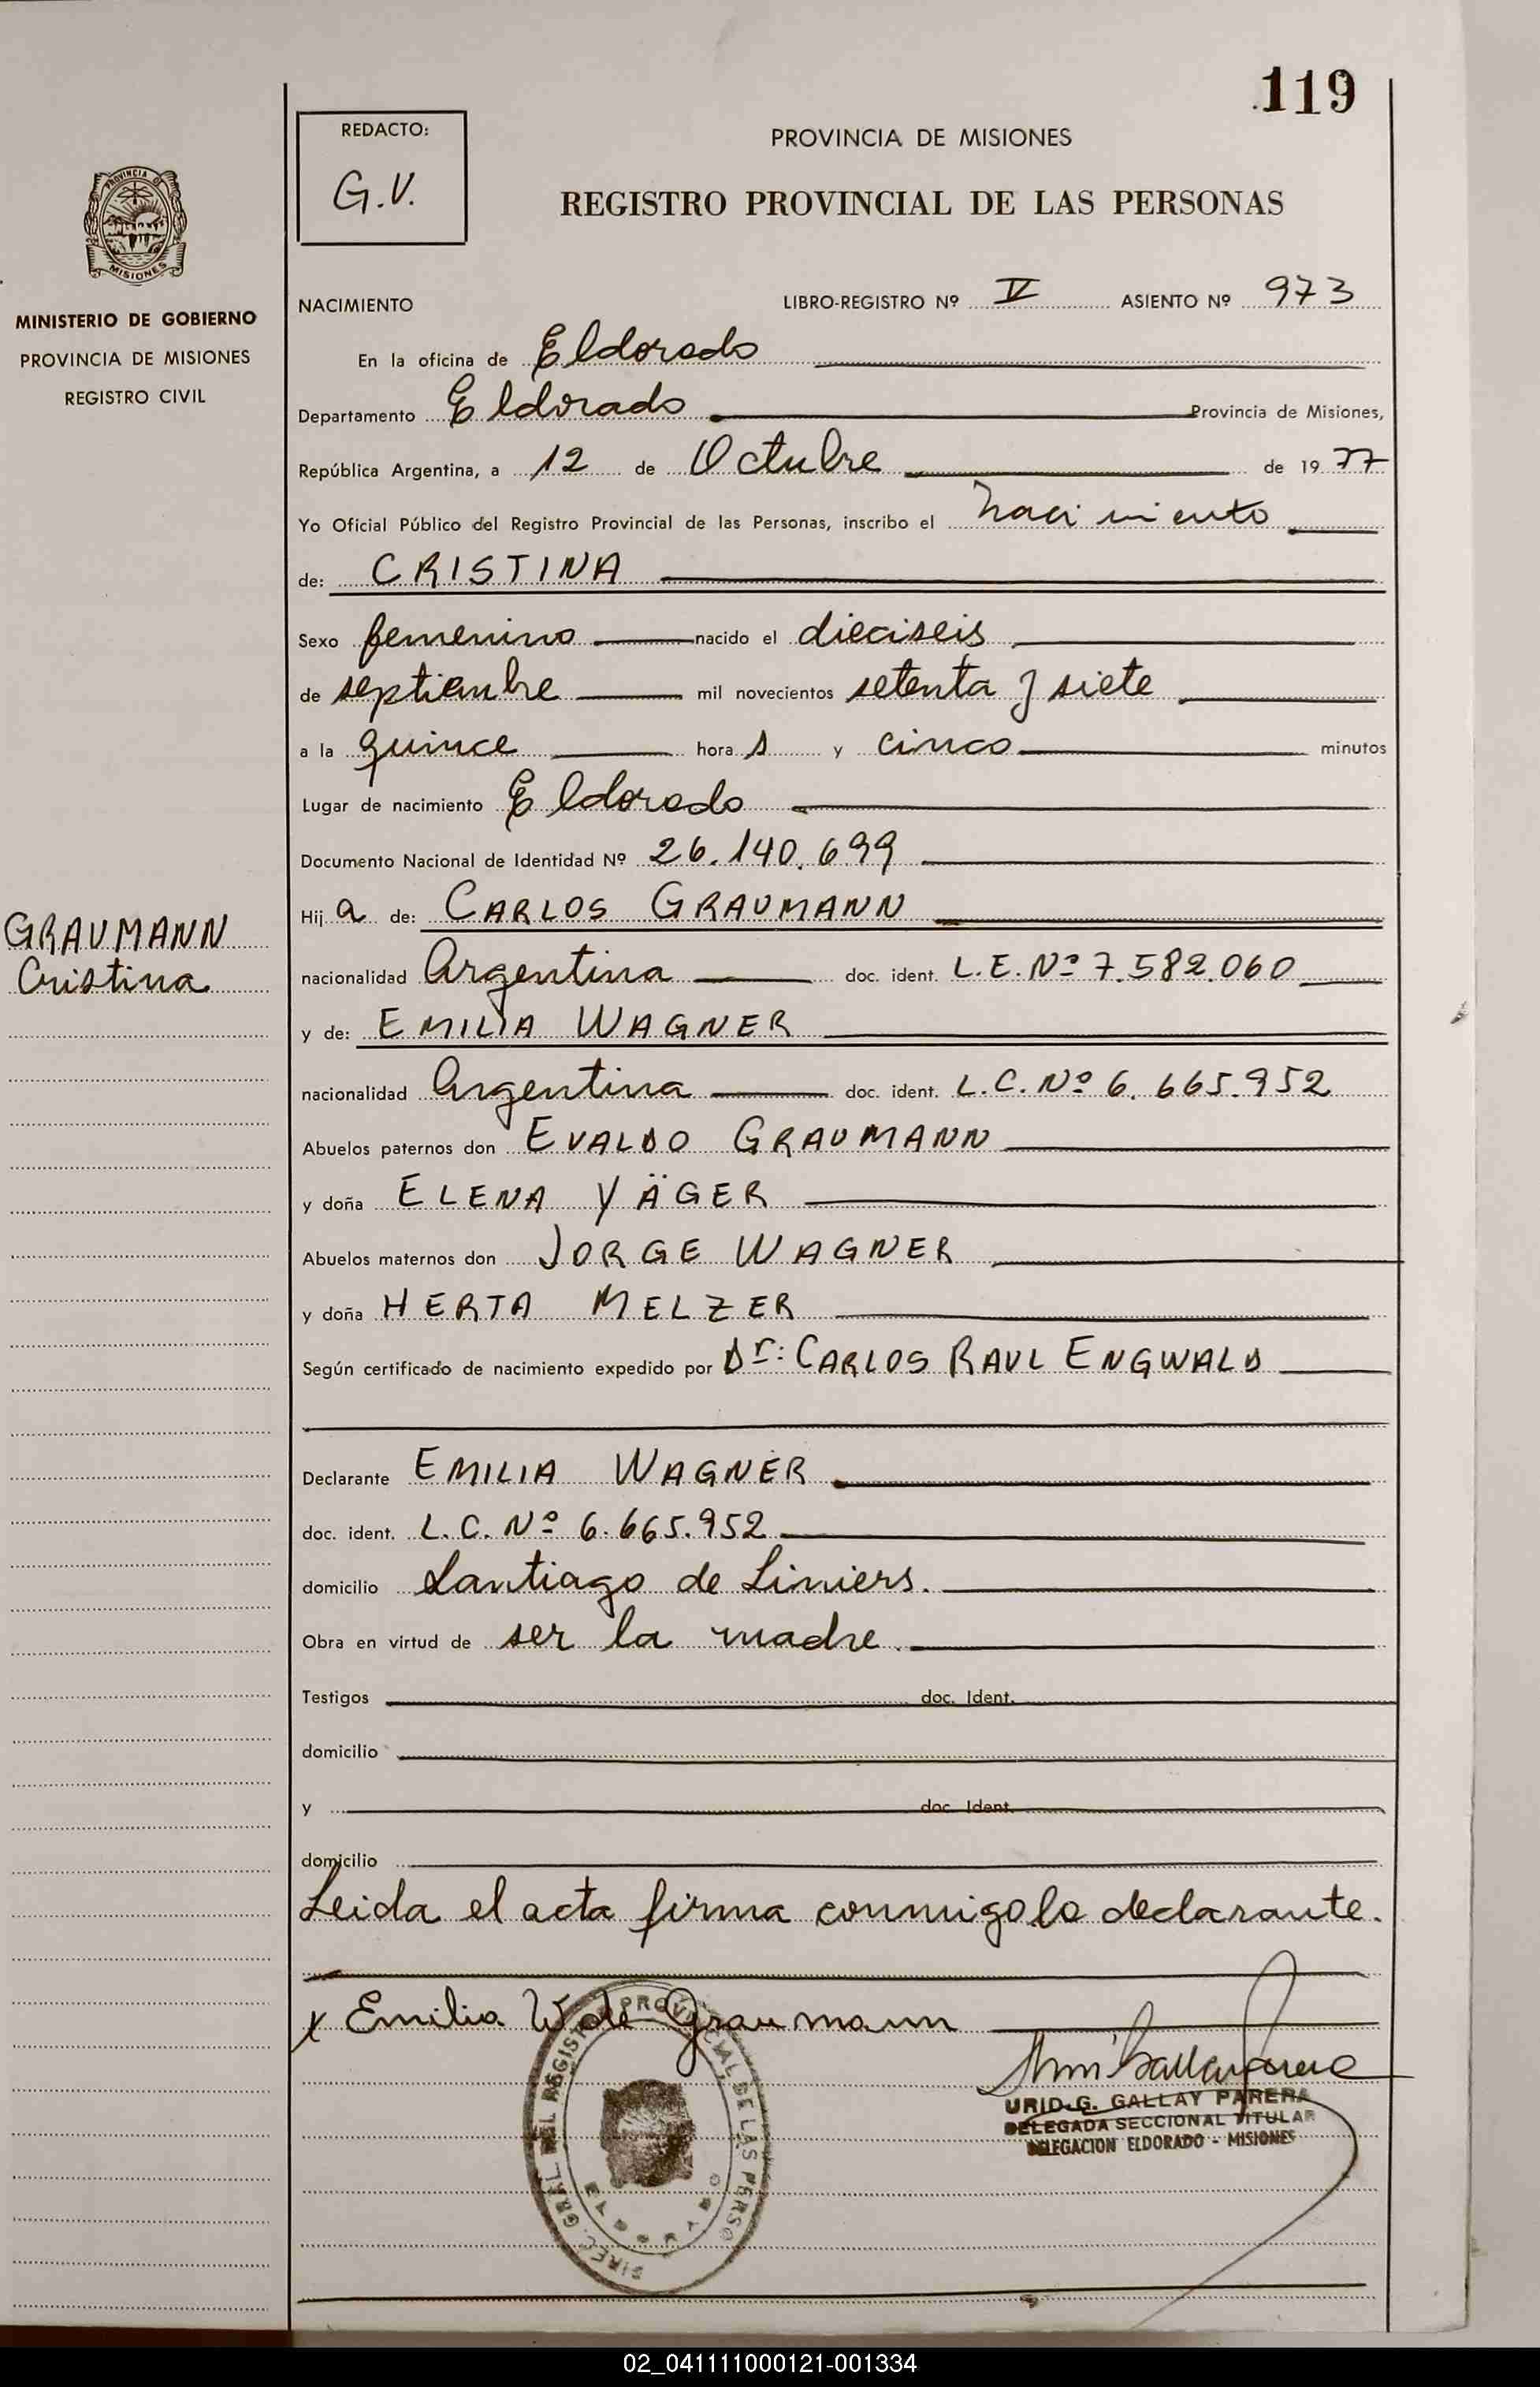 119
REDACTO:
G.V.
PROVINCIA DE MISIONES
REGISTRO PROVINCIAL DE LAS PERSONAS
PROVINCIA DE
MISIONES
MINISTERIO DE GOBIERNO
PROVINCIA DE MISIONES
REGISTRO CIVIL
NACIMIENTO LIBRO-REGISTRO Nº V ASIENTO Nº 973
En la oficina de Eldorado
Departamento Eldorado Provincia de Misiones,
República Argentina, a 12 de Octubre de 1977
Yo Oficial Público del Registro Provincial de las Personas, inscribo el nacimiento
de: CRISTINA
Sexo femenino nacido el dieciseis
de septiembre mil novecientos setenta y siete
a la quince hora s y cinco minutos
Lugar de nacimiento Eldorado
Documento Nacional de Identidad Nº 26.140.699
Hija de: CARLOS GRAUMANN
GRAUMANN
Cristina
nacionalidad Argentina doc. ident. L.E. Nº 7.582.060
y de: EMILIA WAGNER
nacionalidad Argentina doc. ident. L.C. Nº 6.665.952
Abuelos paternos don EVALDO GRAUMANN
y doña ELENA YÄGER
Abuelos maternos don JORGE WAGNER
y doña HERTA MELZER
Según certificado de nacimiento expedido por Dr: CARLOS RAUL ENGWALD
Declarante EMILIA WAGNER
doc. ident. L.C. Nº 6.665.952
domicilio Santiago de Liniers.
Obra en virtud de ser la madre.
Testigos doc. Ident.
domicilio
y doc. Ident.
domicilio
Leida el acta firma conmigo la declarante.
x Emilia W de Graumann
URID G. GALLAY PARERA
DELEGADA SECCIONAL TITULAR
DELEGACION ELDORADO - MISIONES
DIREC. GRAL. DEL REGISTRO PROVINCIAL DE LAS PERSO
ELDORADO
02_041111000121-001334